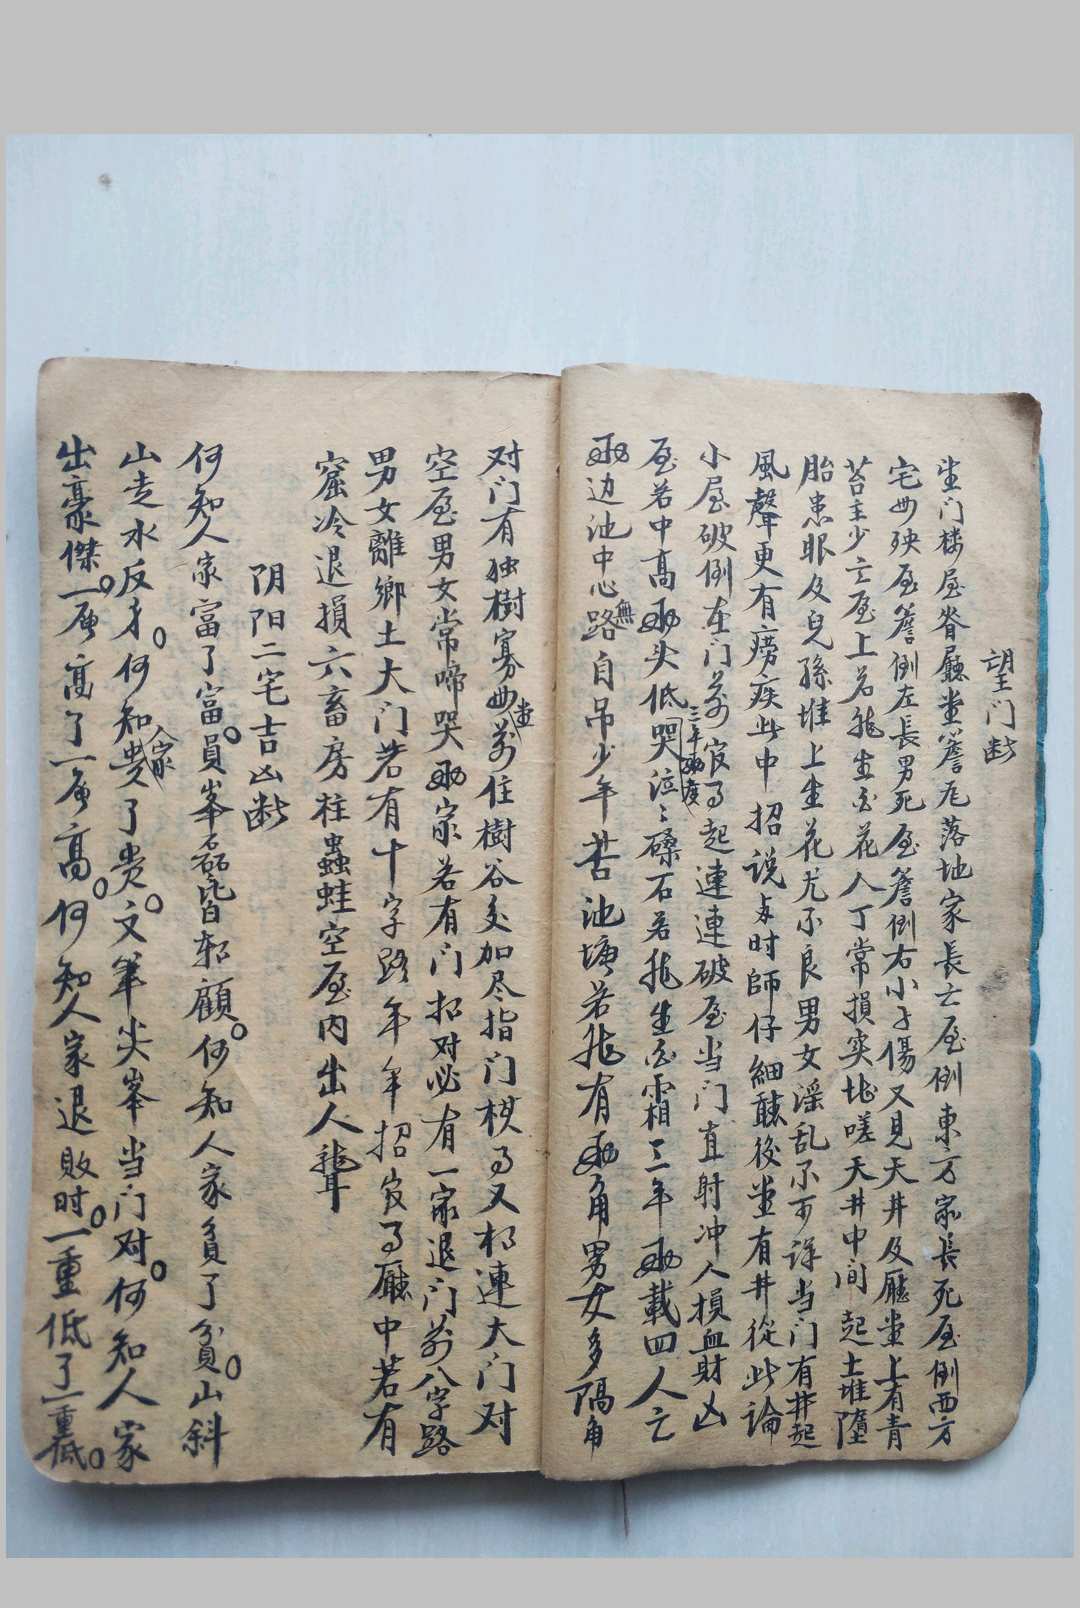 望门断
坐门楼屋脊廳堂簷尾落地家長亡屋倒東方家長死屋倒西方
宅母殃屋簷倒左長男死屋簷倒右小子傷又見天井及廳堂上有青
苔主少亡屋上若能生白花人丁常損突地嗟天井中间起土堆墮
胎患眼及兒孫堆上生花尤不良男女淫乱不可详当门有井起
風聲更有痨疾此中招说与时師仔細聽後堂有井從此論
小屋破倒在门前三年两度官司起連連破屋当门直射冲人損血財凶
屋若中高两头低哭泣々磉石若能生白霜三年两載四人亡
两边池中心無路自吊少年苦池塘若能有两角男女多隔角
对门有独樹寡母堂前住樹谷交加尽指门棋司又相連大门对
空屋男女常啼哭两家若有门招对必有一家退门前八字路
男女離鄉土大门若有十字路年年招官司廳中若有
窟冷退損六畜房柱蟲蛀空屋内出人聾
阴阳二宅吉凶断
何知人家富了富。員峯磊磊皆相顧。何知人家貧了貧。山斜
山走水反身。何知人家贵了贵。文筆尖峯当门对。何知人家
出豪傑。一層高了一層高。何知人家退敗时。一重低了一重低。